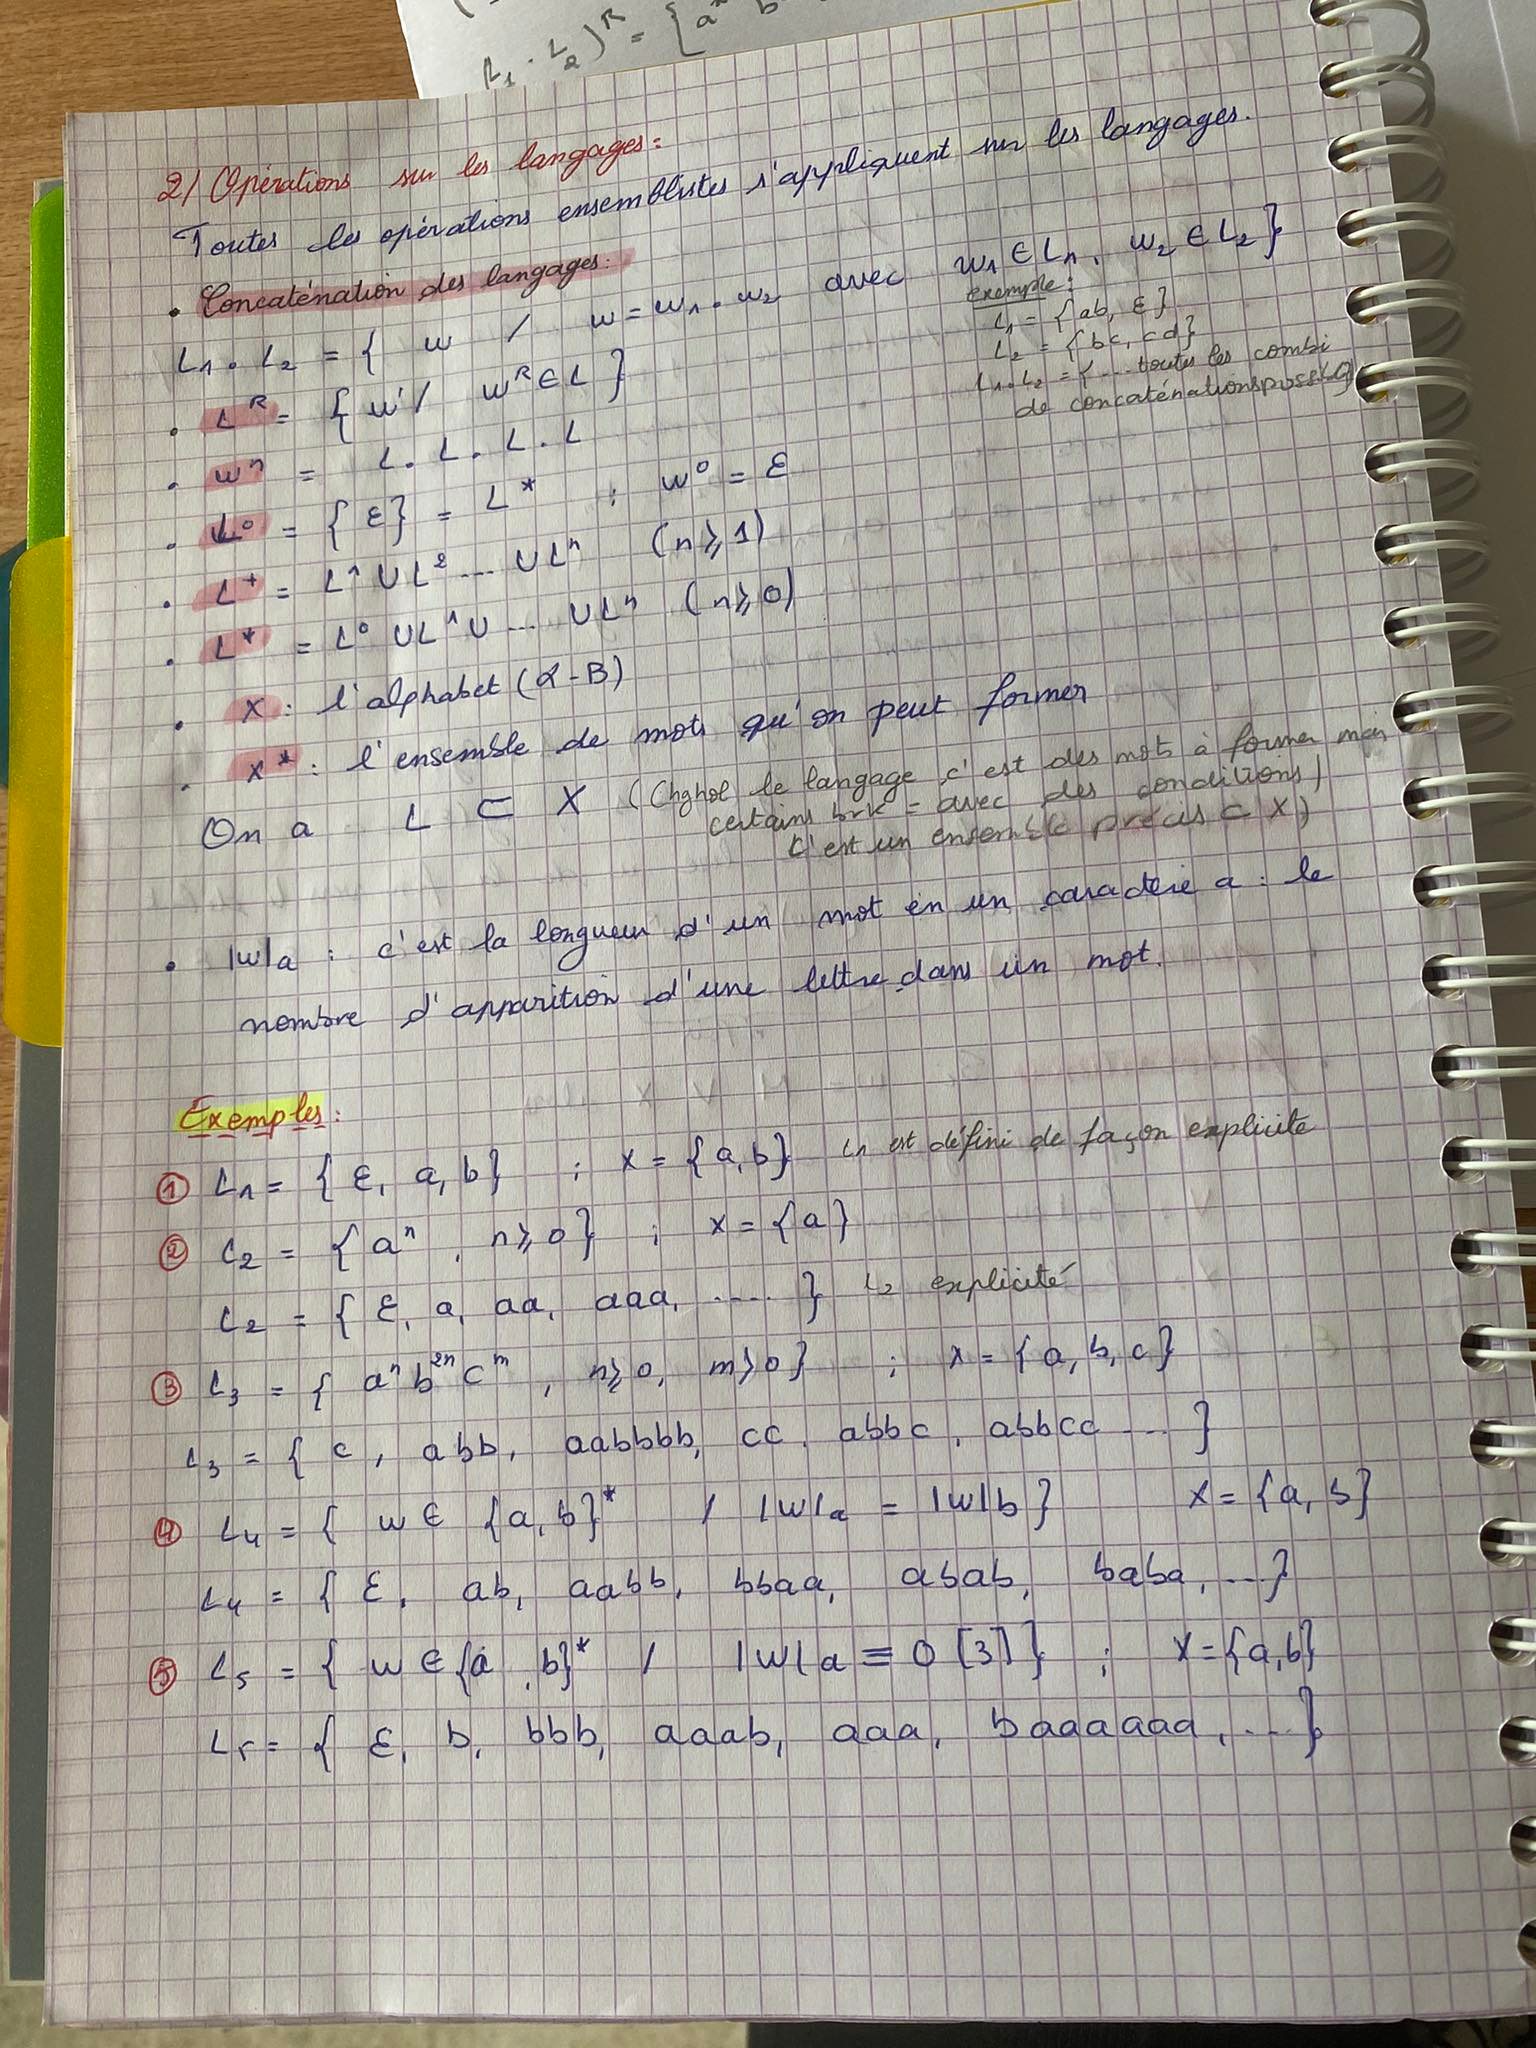 L₁ . L₂)ᴿ = {aⁿ b
2/ Opérations sur les langages :
Toutes les opérations ensemblistes s'appliquent sur les langages.
• Concaténation des langages :
L₁ . L₂ = { w / w = w₁ . w₂ avec w₁ ∈ L₁ , w₂ ∈ L₂ }
exemple :
L₁ = {ab, ε}
L₂ = {bc, cd}
L₁.L₂ = {... toutes les combi
de concaténations
• Lᴿ = { w / wᴿ ∈ L }
• wⁿ = L . L . L . L
• L⁰ = { ε } = L* ; w⁰ = ε
• L⁺ = L¹ ∪ L² ... ∪ Lⁿ (n ⩾ 1)
• L* = L⁰ ∪ L¹ ∪ ... ∪ Lⁿ (n ⩾ 0)
• X : l'alphabet (α-B)
• X* : l'ensemble de mots qu'on peut former
On a L ⊂ X (Chghol le langage c'est des mots à former mais
certains brk = avec des conditions)
c'est un ensemble précis ⊂ X)
• |w|a : c'est la longueur d'un mot en un caractère a : le
nombre d'apparition d'une lettre dans un mot.
Exemples :
① L₁ = { ε, a, b } ; X = {a, b} L₁ est défini de façon explicite
② L₂ = { aⁿ , n ⩾ 0 } ; X = {a}
L₂ = { ε, a, aa, aaa, ..... } L₂ explicité
③ L₃ = { aⁿ b²ⁿ cᵐ , n ⩾ 0, m ⩾ 0 } ; X = {a, b, c}
L₃ = { c , abb, aabbbb, cc, abbc, abbcc ... }
④ L₄ = { w ∈ {a, b}* / |w|a = |w|b } X = {a, b}
L₄ = { ε, ab, aabb, bbaa, abab, baba, ... }
⑤ L₅ = { w ∈ {a , b}* / |w|a ≡ 0 [3] } ; X = {a,b}
L₅ = { ε, b, bbb, aaab, aaa, baaaaaa, ... }